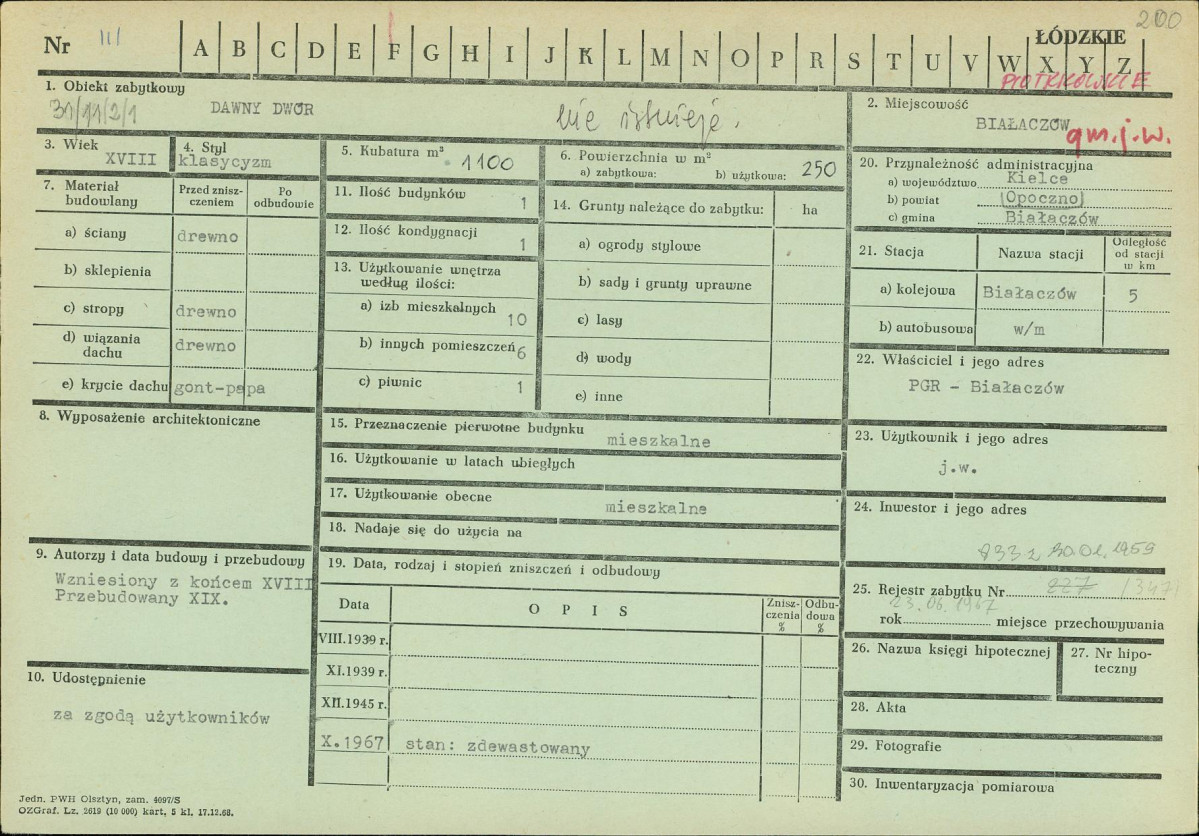 200
Nr III A B C D E F G H I J K L M N O P R S T U V W X Y Z
ŁÓDZKIE
PIOTRKOWSKIE
1. Obiekt zabytkowy
31/11/2/1 DAWNY DWÓR nie istnieje.
2. Miejscowość
BIAŁACZÓW
gm. j.w.
3. Wiek
XVIII
4. Styl
klasycyzm
5. Kubatura m³
1100
6. Powierzchnia w m²
a) zabytkowa: b) użytkowa: 250
7. Materiał budowlany
Przed zniszczeniem
Po odbudowie
a) ściany drewno
b) sklepienia
c) stropy drewno
d) wiązania dachu drewno
e) krycie dachu gont-papa
8. Wyposażenie architektoniczne
9. Autorzy i data budowy i przebudowy
Wzniesiony z końcem XVIII
Przebudowany XIX.
10. Udostępnienie
za zgodą użytkowników
11. Ilość budynków
1
12. Ilość kondygnacji
1
13. Użytkowanie wnętrza
według ilości:
a) izb mieszkalnych
10
b) innych pomieszczeń 6
c) piwnic 1
14. Grunty należące do zabytku: ha
a) ogrody stylowe
b) sady i grunty uprawne
c) lasy
d) wody
e) inne
15. Przeznaczenie pierwotne budynku
mieszkalne
16. Użytkowanie w latach ubiegłych
17. Użytkowanie obecne
mieszkalne
18. Nadaje się do użycia na
19. Data, rodzaj i stopień zniszczeń i odbudowy
Data OPIS Zniszczenia % Odbudowa %
VIII.1939 r.
XI.1939 r.
XII.1945 r.
X.1967 stan: zdewastowany
20. Przynależność administracyjna
a) województwo Kielce
b) powiat (Opoczno)
c) gmina Białaczów
21. Stacja Nazwa stacji Odległość od stacji w km
a) kolejowa Białaczów 5
b) autobusowa w/m
22. Właściciel i jego adres
PGR - Białaczów
23. Użytkownik i jego adres
j.w.
24. Inwestor i jego adres
833 z 30.01.1959
25. Rejestr zabytku Nr 227 /347/
23.06.1967
rok miejsce przechowywania
26. Nazwa księgi hipotecznej
27. Nr hipoteczny
28. Akta
29. Fotografie
30. Inwentaryzacja pomiarowa
Jedn. PWH Olsztyn, zam. 4097/S
OZGraf. Lz. 2619 (10 000) kart. 5 kl. 17.12.68.